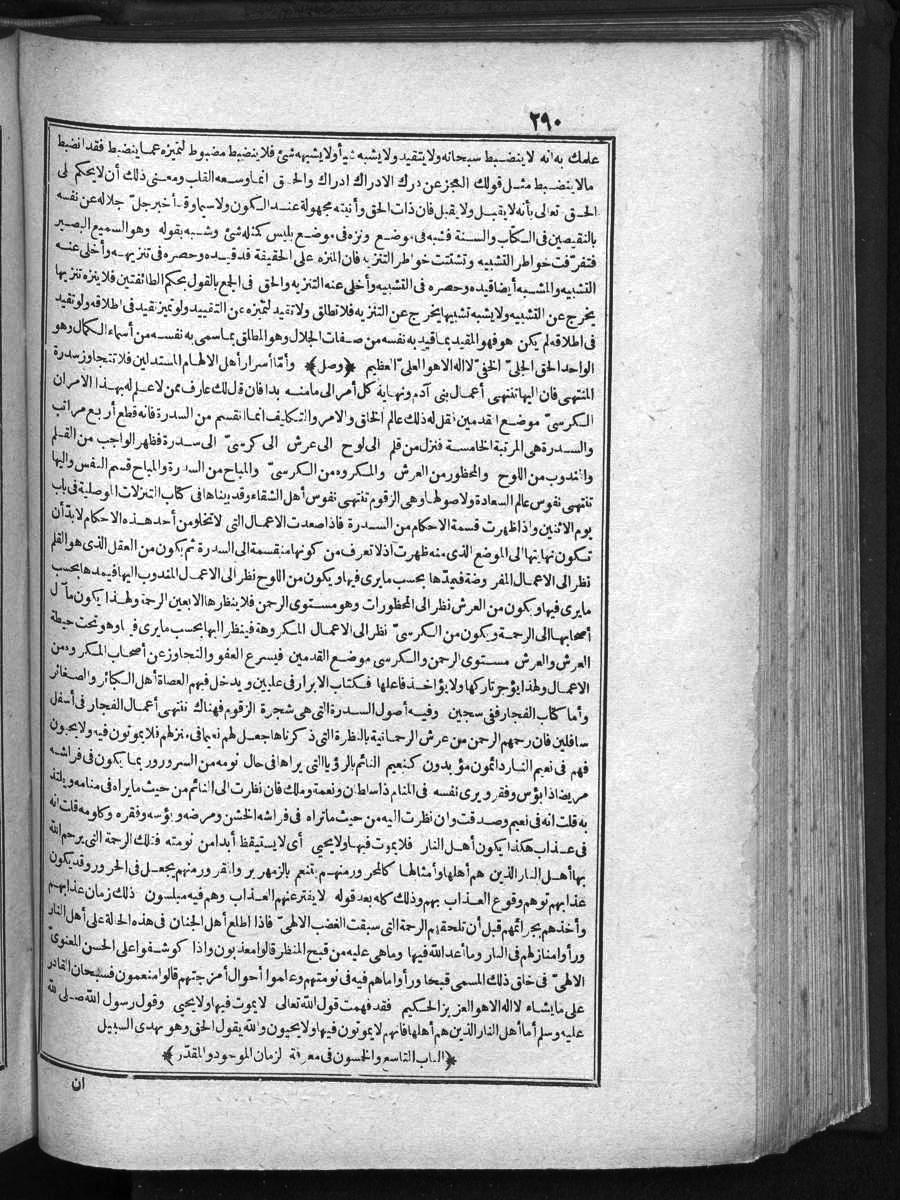 ٢٩٠
علمك به انه لا ينضبط سبحانه ولا يتقيد ولا يشبه شيأ ولا يشبهه شئ فلا ينضبط مضبوط لتميزه عما ينضبط فقد انضبط
مالا ينضبط مثل قولك العجز عن درك الادراك ادراك والحق انما وسعه القلب ومعنى ذلك أن لا يحكم لى
الحق تعالى بأنه لا يقبل ولا يقبل فان ذات الحق وأنيته مجهولة عند الكون ولا سيما وقد أخبر جل جلاله عن نفسه
بالنقيضين فى الكتاب والسنة فشبه فى موضع ونزه فى موضع بليس كمثله شئ وشبه بقوله وهو السميع البصير
فتفرقت خواطر التشبيه وتشتتت خواطر التنزيه فان المنزه على الحقيقة قد قيده وحصره فى تنزيهه وأخلى عنه
التشبيه والمشبه أيضا قيده وحصره فى التشبيه وأخلى عنه التنزيه والحق فى الجمع بالقول بحكم الطائفتين فلا ينزه تنزيها
يخرج عن التشبيه ولا يشبه تشبيها يخرج عن التنزيه فلا تطلق ولا تقيد لتميزه عن التقييد ولو تميز تقيد فى اطلاقه ولو تقيد
فى اطلاقه لم يكن هو فهو المقيد بما قيد به نفسه من صفات الجلال وهو المطلق بما سمى به نفسه من أسماء الكمال وهو
الواحد الحق الجلىّ الخفىّ لا اله الا هو العلىّ العظيم ﴿وصل﴾ وأمّا أسرار أهل الالهام المستدلين فلا تتجاوز سدرة
المنتهى فان اليها تنتهى أعمال بنى آدم ونهاية كل أمر الى ما منه بدا فان قال لك عارف ممن لا علم له بهذا الامر ان
الكرسىّ موضع القدمين فقل له ذلك عالم الخلق والامر والتكليف انما انقسم من السدرة فانه قطع أربع مراتب
والسدرة هى المرتبة الخامسة فنزل من قلم الى لوح الى عرش الى كرسىّ الى سدرة فظهر الواجب من القلم
والمندوب من اللوح والمحظور من العرش والمكروه من الكرسىّ والمباح من السدرة والمباح قسم النفس واليها
تنتهى نفوس عالم السعادة ولاصولها وهى الزقوم تنتهى نفوس أهل الشقاء وقد بيناها فى كتاب التنزلات الموصلية فى باب
يوم الاثنين واذا ظهرت قسمة الاحكام من السدرة فاذا صعدت الاعمال التى لا تخلو من أحد هذه الاحكام لابدّ أن
تكون نهايتها الى الموضع الذى منه ظهرت اذ لا تعرف من كونها منقسمة الى السدرة ثم يكون من العقل الذى هو القلم
نظر الى الاعمال المفروضة فيمدّها بحسب ما يرى فيها ويكون من اللوح نظر الى الاعمال المندوب اليها فيمدها بحسب
ما يرى فيها ويكون من العرش نظر الى المحظورات وهو مستوى الرحمن فلا ينظرها الا بعين الرحمة ولهذا يكون مآل
أصحابها الى الرحمة ويكون من الكرسىّ نظر الى الاعمال المكروهة فينظر اليها بحسب ما يرى فيها وهو تحت حيطة
العرش والعرش مستوى الرحمن والكرسى موضع القدمين فيسرع العفو والتجاوز عن أصحاب المكروه من
الاعمال ولهذا يؤجر تاركها ولا يؤاخذ فاعلها فكتاب الابرار فى عليين ويدخل فيهم العصاة أهل الكبائر والصغائر
وأما كتاب الفجار ففى سجين وفيه أصول السدرة التى هى شجرة الزقوم فهناك تنتهى أعمال الفجار فى أسفل
سافلين فان رحمهم الرحمن من عرش الرحمانية بالنظرة التى ذكرناها جعل لهم نعيما فى منزلهم فلا يموتون فيه ولا يحيون
فهم فى نعيم النار دائمون مؤبدون كنعيم النائم بالرؤيا التى يراها فى حال نومه من السرور وربما يكون فى فراشه
مريضا ذا بؤس وفقر ويرى نفسه فى المنام ذا سلطان ونعمة وملك فان نظرت الى النائم من حيث ما يراه فى منامه ويلتذ
به قلت انه فى نعيم وصدقت وان نظرت اليه من حيث ما تراه فى فراشه الخشن ومرضه وبؤسه وفقره وكلومه قلت انه
فى عذاب هكذا يكون أهل النار فلا يموت فيها ولا يحيى أى لا يستيقظ أبدا من نومته فتلك الرحمة التى يرحم الله
بها أهل النار الذين هم أهلها وأمثالها كالمحرور منهم يتنعم بالزمهرير والمقرور منهم يجعل فى الحرور وقد يكون
عذابهم توهم وقوع العذاب بهم وذلك كله بعد قوله لا يفتر عنهم العذاب وهم فيه مبلسون ذلك زمان عذابهم
وأخذهم بجرائمهم قبل أن تلحقهم الرحمة التى سبقت الغضب الالهىّ فاذا اطلع أهل الجنان فى هذه الحالة على أهل النار
ورأوا منازلهم فى النار وما أعد الله فيها وما هى عليه من قبح المنظر قالوا معذبون واذا كوشفوا على الحسن المعنوىّ
الالهىّ فى خلق ذلك المسمى قبحا ورأوا ما هم فيه فى نومتهم وعلموا أحوال أمزجتهم قالوا منعمون فسبحان القادر
على ما يشاء لا اله الا هو العزيز الحكيم فقد فهمت قول الله تعالى لا يموت فيها ولا يحيى وقول رسول الله صلى الله
عليه وسلم أما أهل النار الذين هم أهلها فانهم لا يموتون فيها ولا يحيون والله يقول الحق وهو يهدى السبيل
﴿الباب التاسع والخسون فى معرفة الزمان الموجود والمقدّر﴾
ان